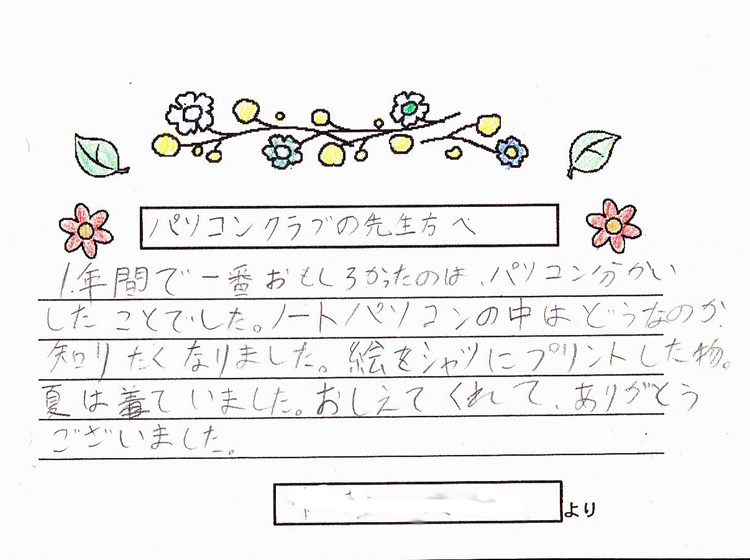 パソコンクラブの先生方へ
1年間で一番おもしろかったのは、パソコン分かい
したことでした。ノートパソコンの中はどうなのか、
知りたくなりました。絵をシャツにプリントした物。
夏は着ていました。おしえてくれて、ありがとう
ございました。
より